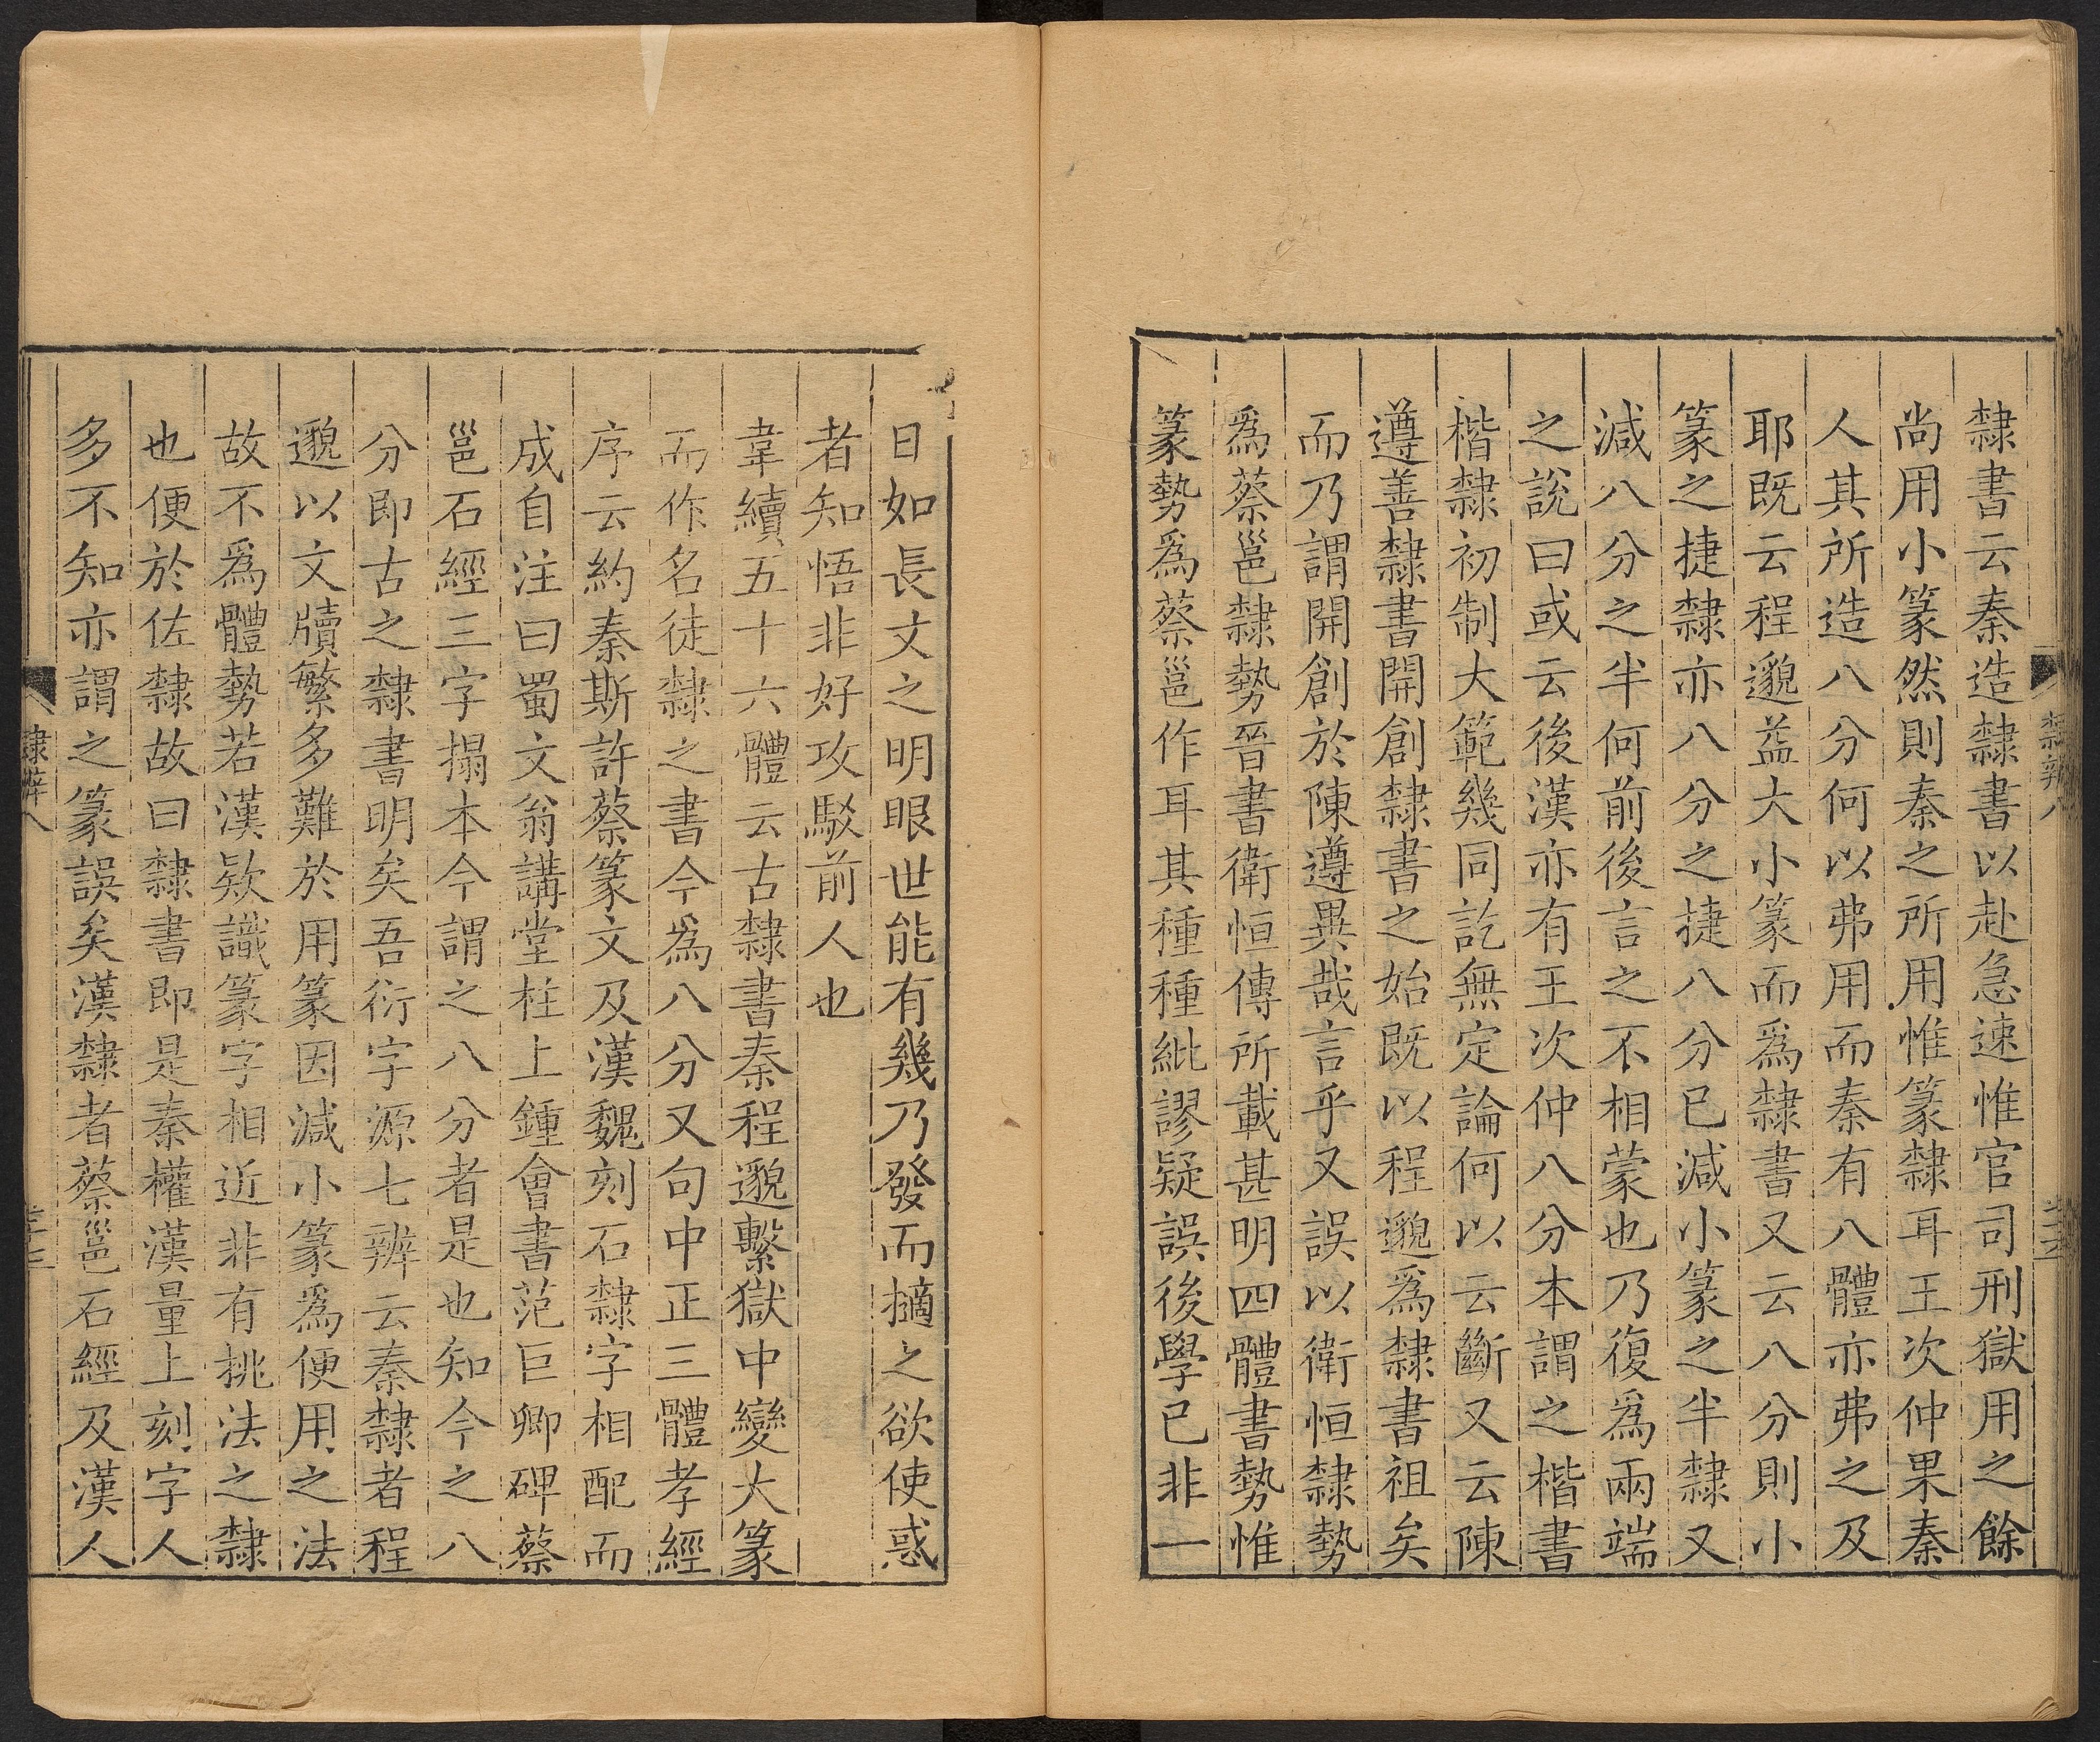 隸書云秦造隸書以赴急速惟官司刑獄用之餘
尚用小篆然則秦之所用惟篆隸耳王次仲果秦
人其所造八分何以弗用而秦有八體亦弗之及
耶既云程邈益大小篆而爲隸書又云八分則小
篆之捷隸亦八分之捷八分已減小篆之半隸又
減八分之半何前後言之不相蒙也乃復爲兩端
之說曰或云後漢亦有王次仲八分本謂之楷書
楷隸初制大範幾同訖無定論何以云斷又云陳
遵善隸書開創隸書之始既以程邈爲隸書祖矣
而乃謂開創於陳遵異哉言乎又誤以衛恒隸勢
爲蔡邕隸勢晉書衛恒傳所載甚明四體書勢惟
篆勢爲蔡邕作耳其種種紕謬疑誤後學已非一
隸辨八
日如長丈之明眼世能有幾乃發而擿之欲使惑
者知悟非好攻駁前人也
韋續五十六體云古隸書秦程邈繫獄中變大篆
而作名徒隸之書今爲八分又句中正三體孝經
序云約秦斯許蔡篆文及漢魏刻石隸字相配而
成自注曰蜀文翁講堂柱上鍾會書范巨卿碑蔡
邕石經三字搨本今謂之八分者是也知今之八
分即古之隸書明矣吾衍字源七辨云秦隸者程
邈以文牘繁多難於用篆因減小篆爲便用之法
故不爲體勢若漢欵識篆字相近非有挑法之隸
也便於佐隸故曰隸書即是秦權漢量上刻字人
多不知亦謂之篆誤矣漢隸者蔡邕石經及漢人
隸辨八